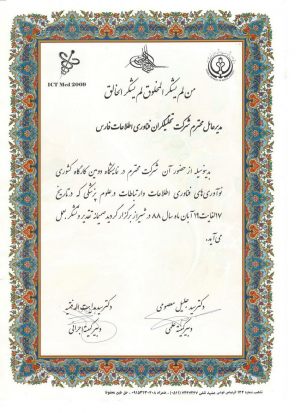 ICT Med 2009
من لم یشکر المخلوق لم یشکر الخالق
مدیرعامل محترم شرکت تحلیلگران فناوری اطلاعات فارس
بدینوسیله از حضور آن شرکت محترم در نمایشگاه دومین کارگاه کشوری
نوآوری‌های فناوری اطلاعات و ارتباطات در علوم پزشکی که در تاریخ
۱۷ لغایت ۱۹ آبان ماه سال ۸۸ در شیراز برگزار گردید صمیمانه تقدیر و تشکر بعمل
می‌آید.
دکتر سید جلیل معصومی
دبیر کمیته علمی
دکتر سید هدایت اله فقیه
دبیر کمیته اجرائی